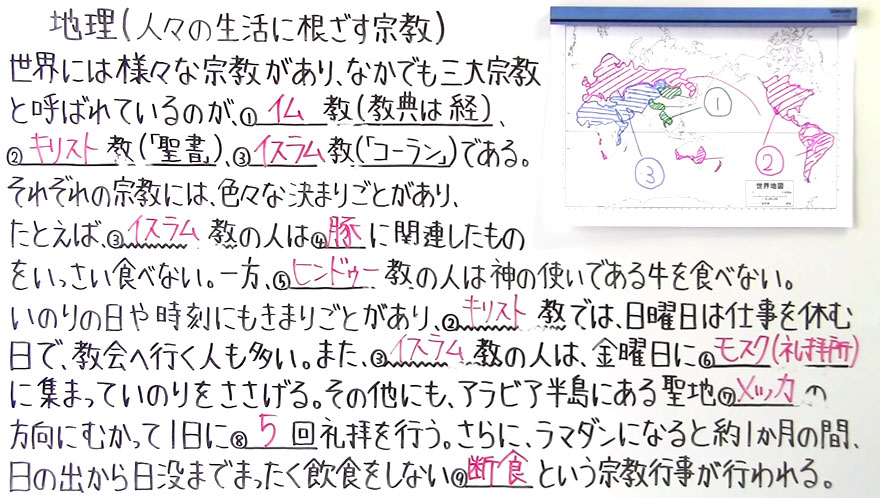 地理(人々の生活に根ざす宗教)
世界には様々な宗教があり、なかでも三大宗教
と呼ばれているのが、①仏教(教典は経)、
②キリスト教(「聖書」)、③イスラム教(「コーラン」)である。
それぞれの宗教には、色々な決まりごとがあり、
たとえば、③イスラム教の人は④豚に関連したもの
をいっさい食べない。一方、⑤ヒンドゥー教の人は神の使いである牛を食べない。
いのりの日や時刻にもきまりごとがあり、②キリスト教では、日曜日は仕事を休む
日で、教会へ行く人も多い。また、③イスラム教の人は、金曜日に⑥モスク(礼拝所)
に集まっていのりをささげる。その他にも、アラビア半島にある聖地⑦メッカの
方向にむかって1日に⑧5回礼拝を行う。さらに、ラマダンになると約1か月の間、
日の出から日没までまったく飲食をしない⑨断食という宗教行事が行われる。
①
②
③
世界地図